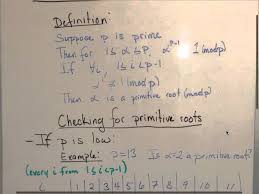 Definition:
Suppose p is prime
Then for 1≤α≤p, α^(p-1) 1 (mod p)
If ∀i, 1≤i<p-1
α^i 1 (mod p)
Then α is a primitive root (mod p)
Checking for primitive roots
- If p is low:
Example: p=13 Is α=2 a primitive root?
(every i from 1≤i<p-1)
1 2 3 4 5 6 7 8 9 10 11